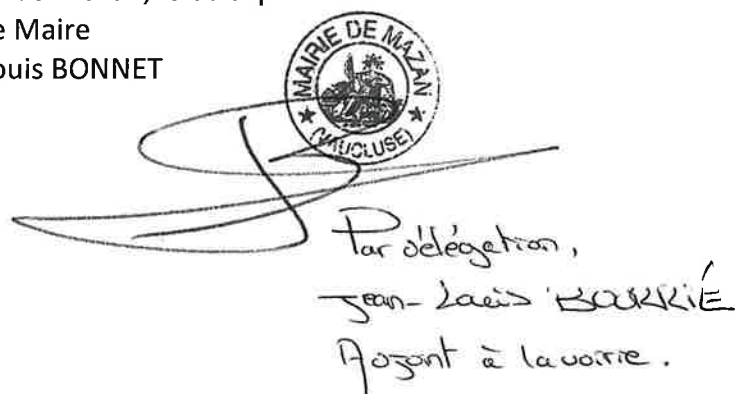 e Maire
ouis BONNET
MAIRIE DE MAZAN
(VAUCLUSE)
Par délégation,
Jean-Louis BOURRIÉ
Adjoint à la voirie.